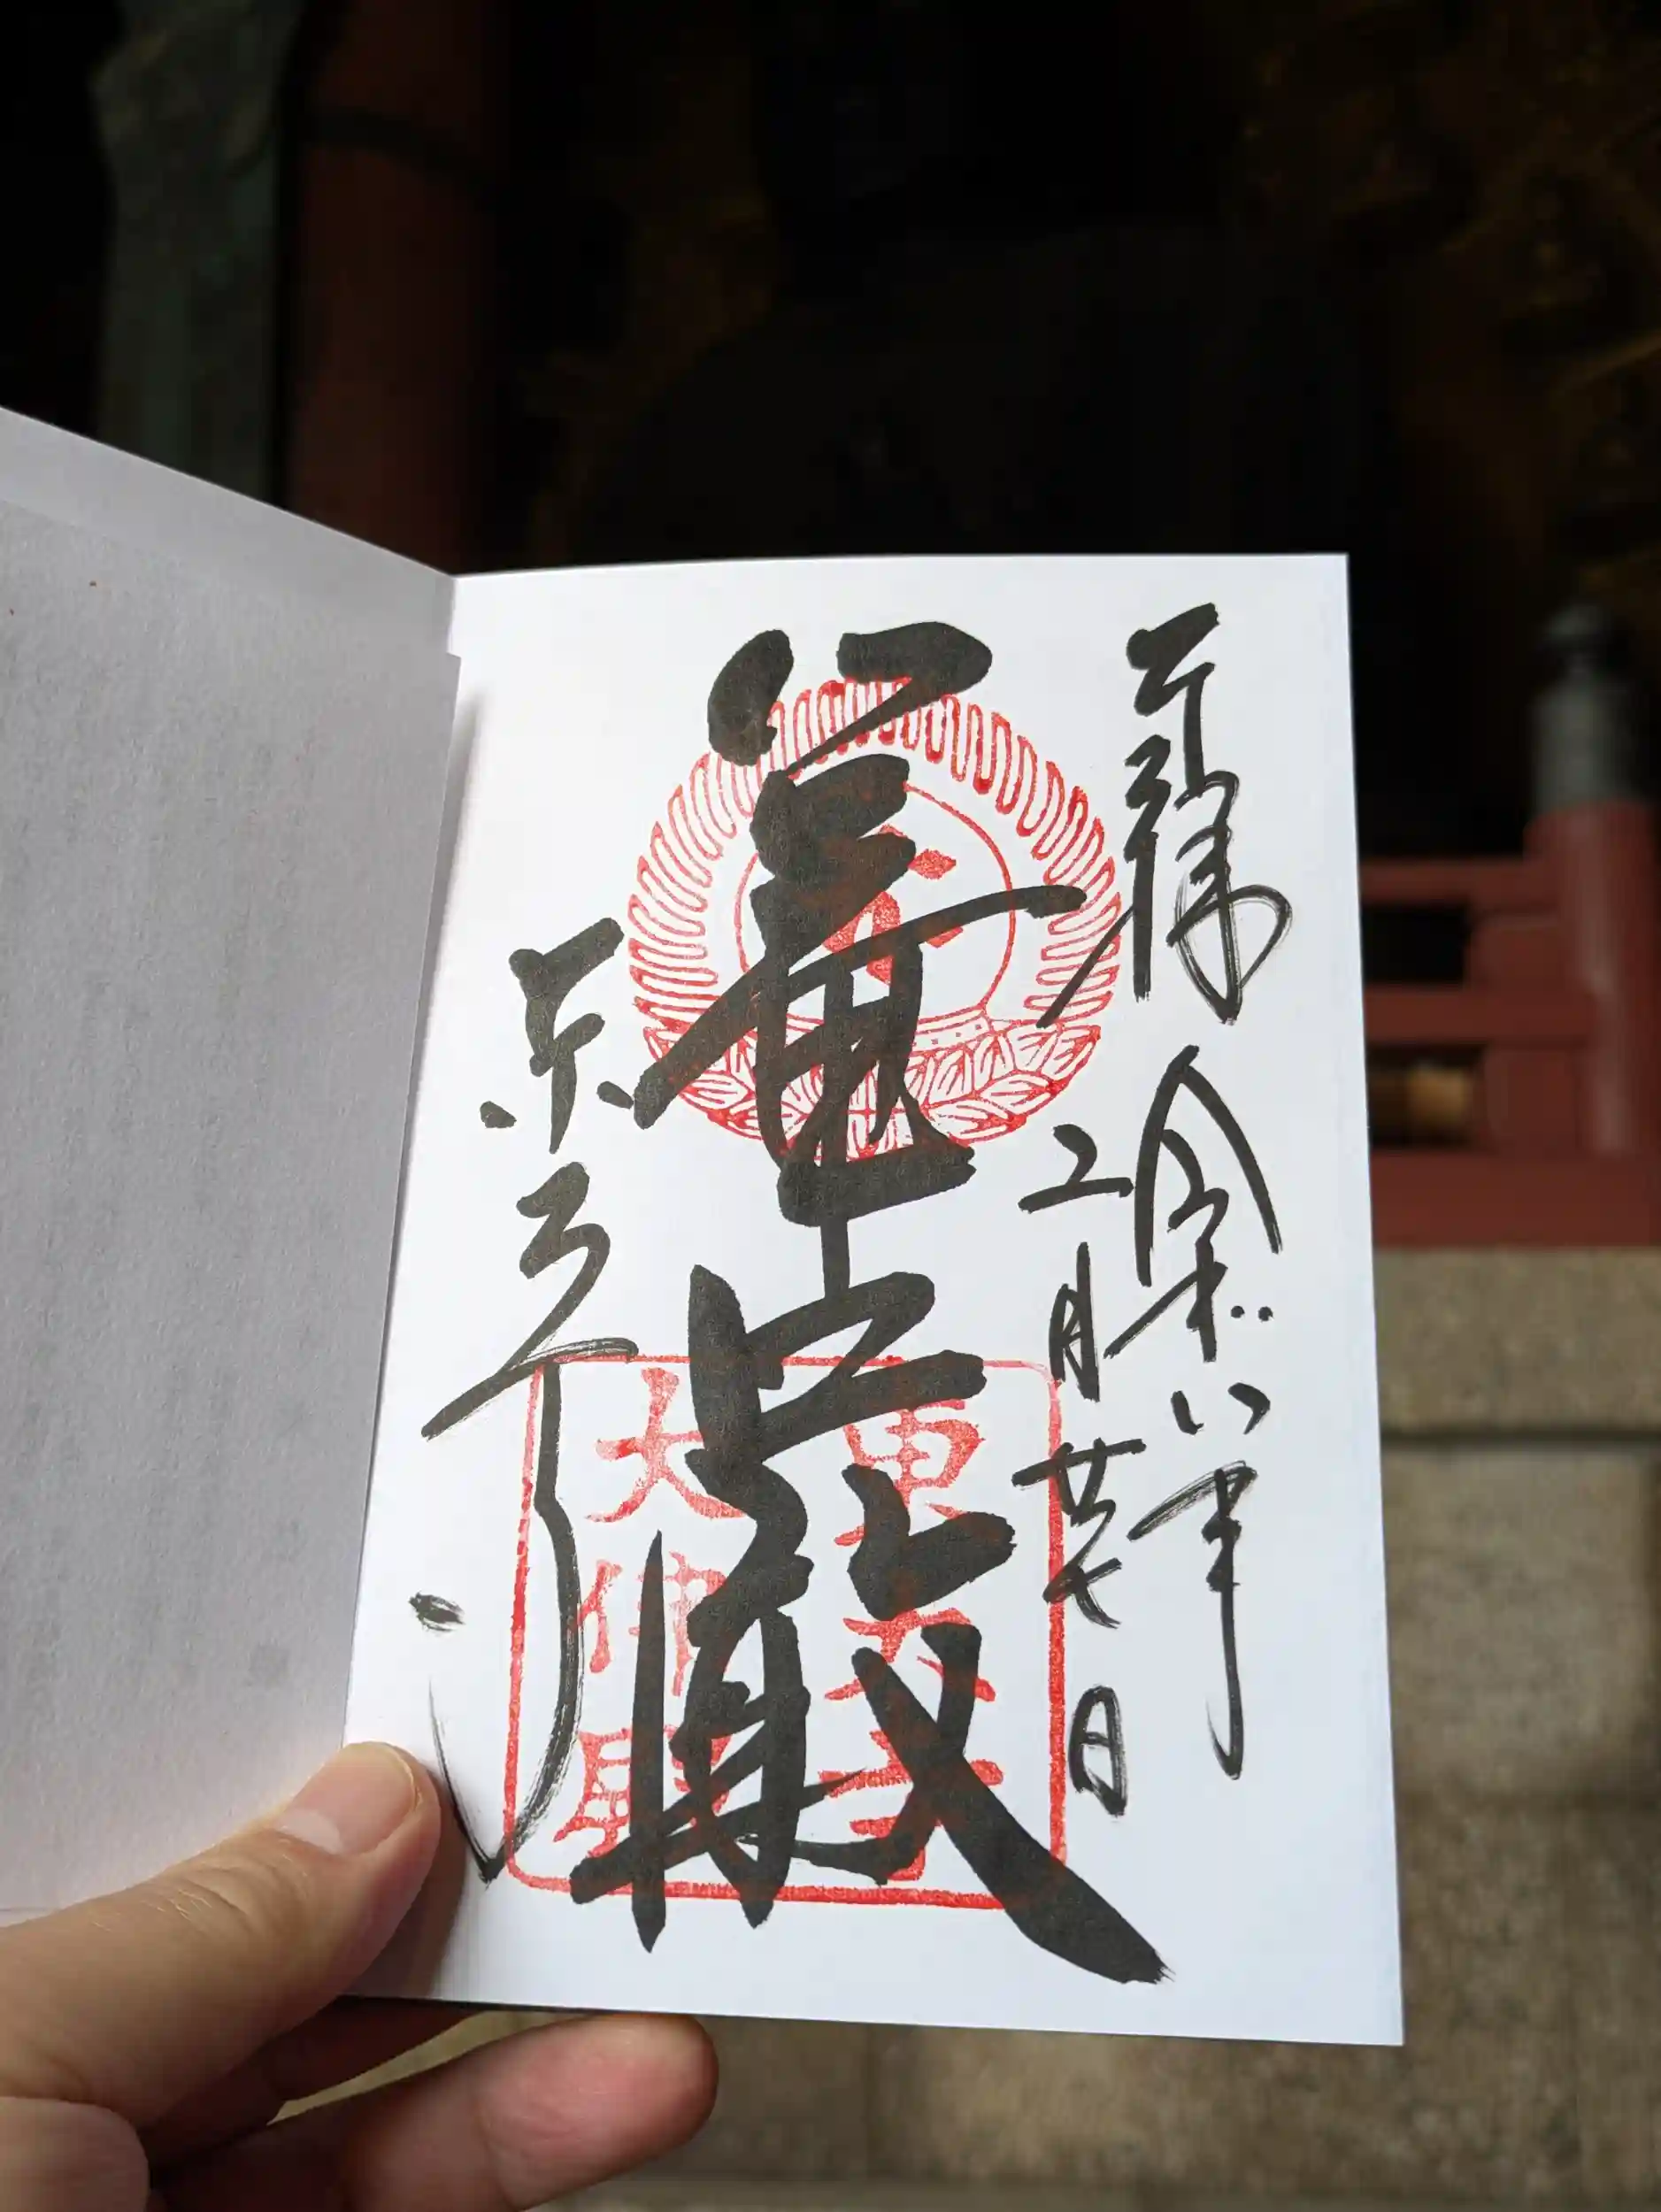 奉拝 令和八年
二月廿七日
華嚴
東大寺
東大寺
大佛殿